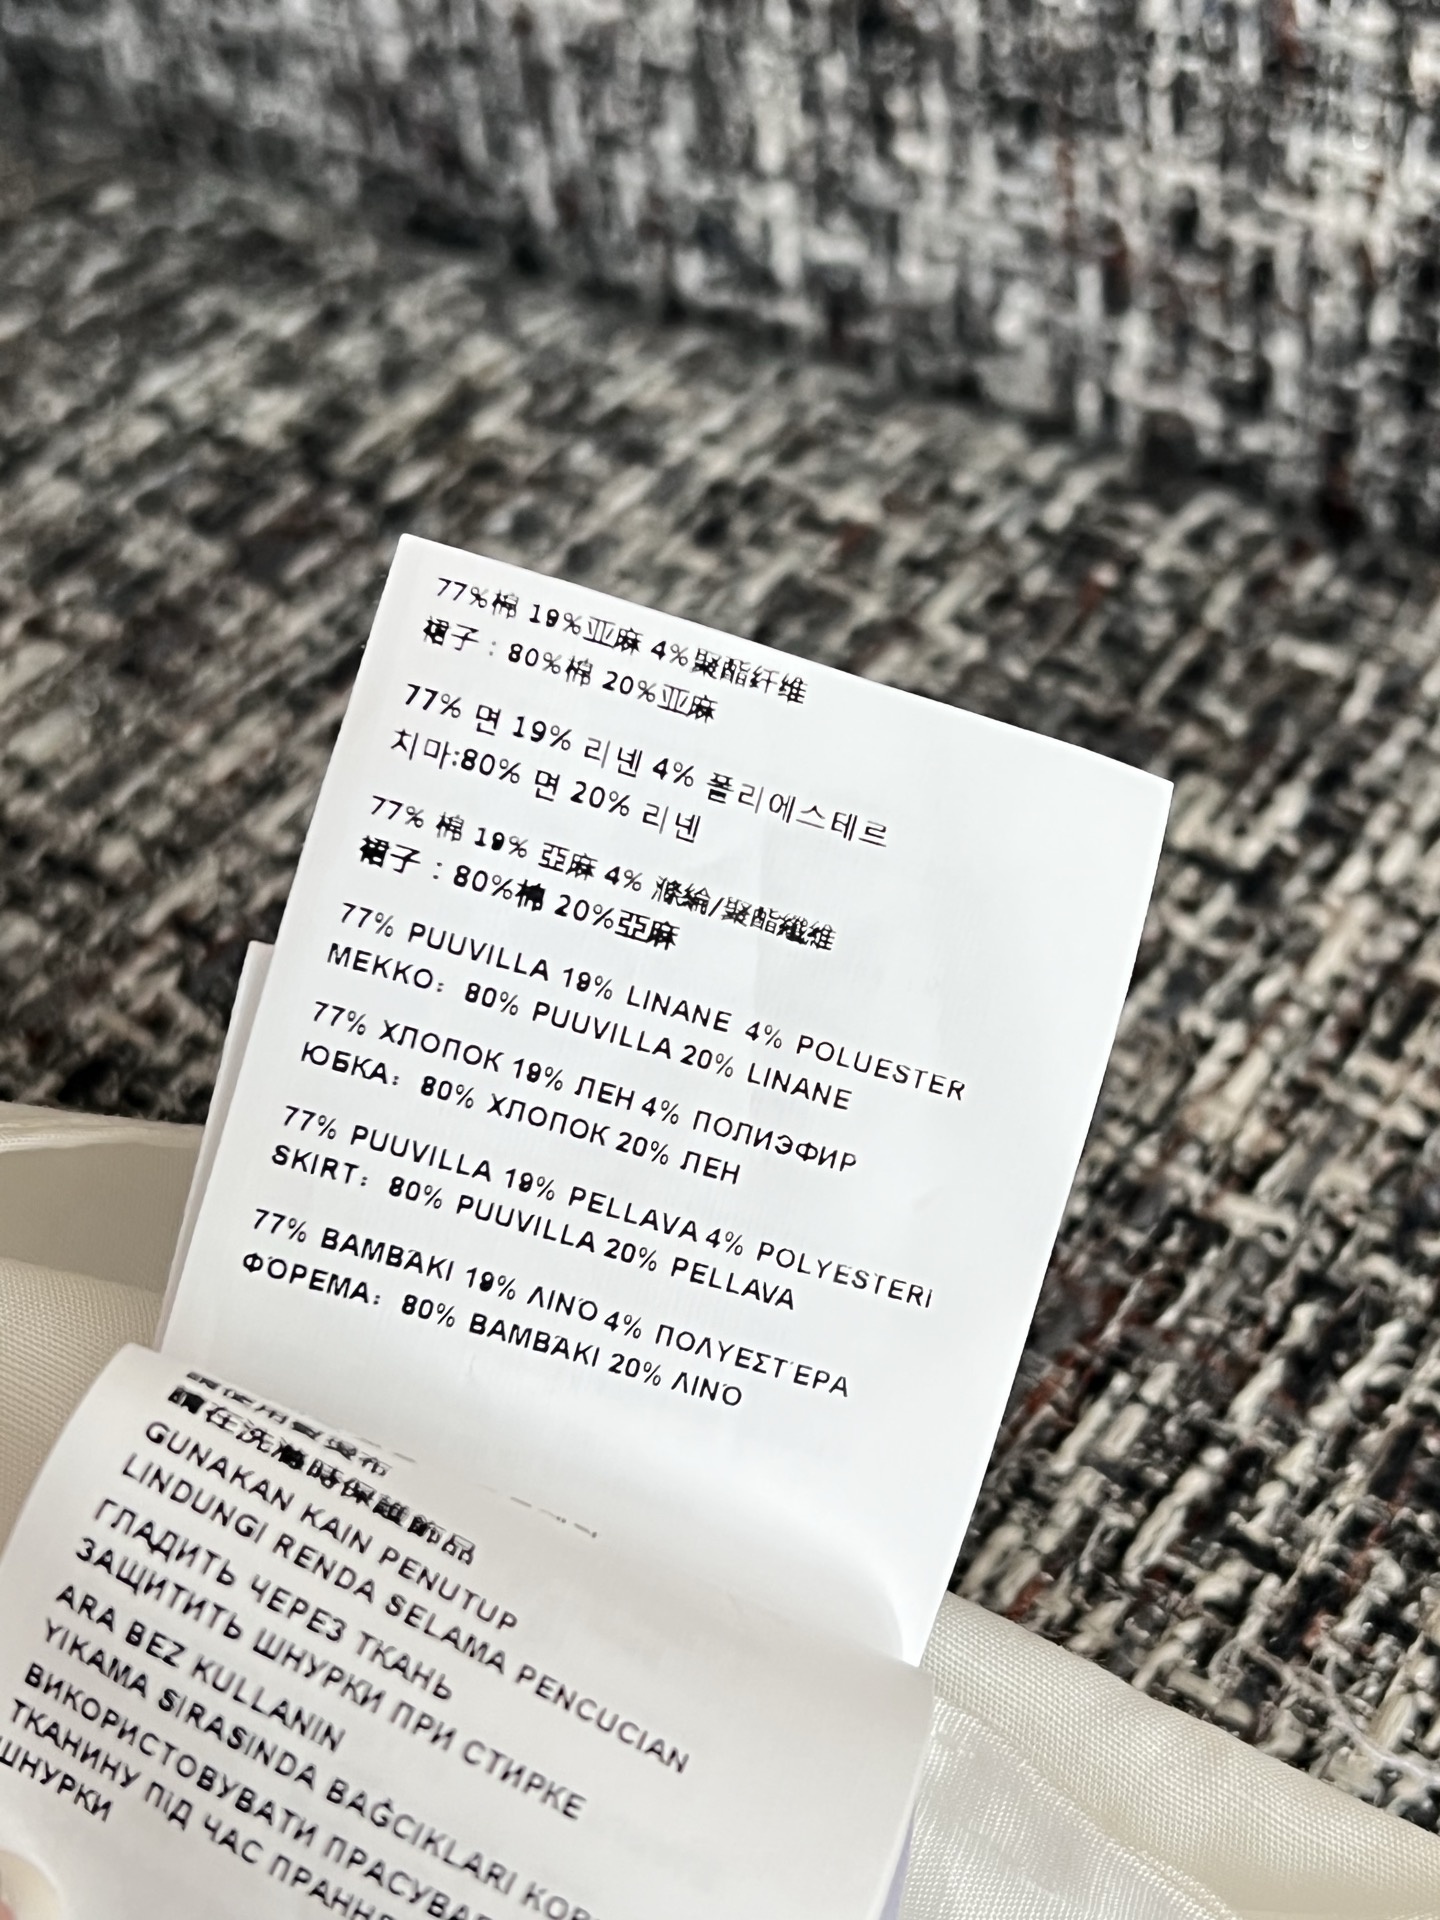 77%棉 19%亚麻 4%聚酯纤维
裙子：80%棉 20%亚麻
77% 면 19% 리넨 4% 폴리에스테르
치마:80% 면 20% 리넨
77% 棉 19% 亞麻 4% 滌綸/聚酯纖維
裙子：80%棉 20%亞麻
77% PUUVILLA 19% LINANE 4% POLUESTER
MEKKO: 80% PUUVILLA 20% LINANE
77% ХЛОПОК 19% ЛЕН 4% ПОЛИЭФИР
ЮБКА: 80% ХЛОПОК 20% ЛЕН
77% PUUVILLA 19% PELLAVA 4% POLYESTERI
SKIRT: 80% PUUVILLA 20% PELLAVA
77% ΒΑΜΒΆΚΙ 19% ΛΙΝΌ 4% ΠΟΛΥΕΣΤΈΡΑ
ΦΌΡΕΜΑ: 80% ΒΑΜΒΆΚΙ 20% ΛΙΝΌ
請在洗滌時保護飾品
GUNAKAN KAIN PENUTUP
LINDUNGI RENDA SELAMA PENCUCIAN
ГЛАДИТЬ ЧЕРЕЗ ТКАНЬ
ЗАЩИТИТЬ ШНУРКИ ПРИ СТИРКЕ
ARA BEZ KULLANIN
YIKAMA SIRASINDA BAĞCIKLARI
ВИКОРИСТОВУВАТИ
ТКАНИНУ ПІД ЧАС
ШНУРКИ